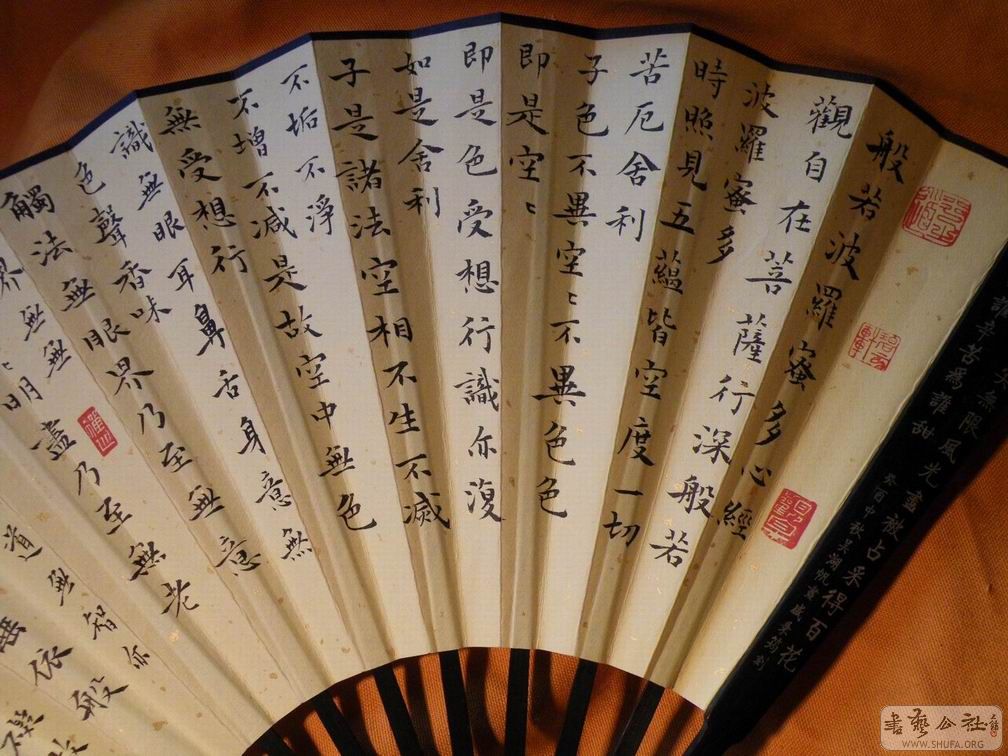 無限風光盡被占采得百花
辛苦為誰甜
癸酉中秋吳湖帆畫
般若波羅蜜多心經
觀自在菩薩行深般若
波羅蜜多
時照見五蘊皆空度一切
苦厄舍利
子色不異空〻不異色色
即是空〻
即是色受想行識亦復
如是舍利
子是諸法空相不生不滅
不垢不淨
不增不減是故空中無色
無受想行
識無眼耳鼻舌身意無
色聲香味
觸法無眼界乃至無意
界無無
〻明盡乃至無老
道無智亦
依般
書藝公社
WWW.SHUFA.ORG